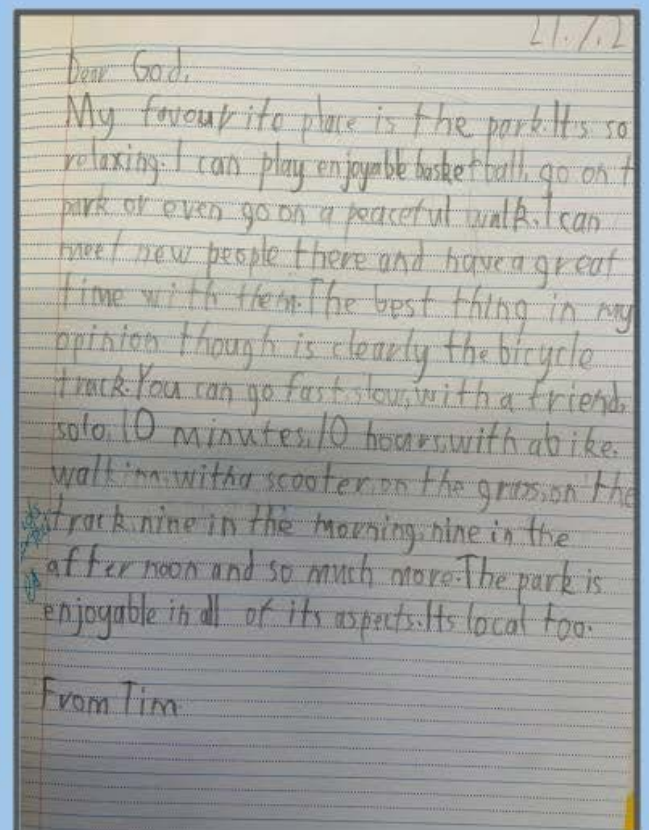 21.7.2
Dear God,
My favourite place is the park. It's so
relaxing. I can play enjoyable basketball, go on t
park or even go on a peaceful walk. I can
meet new people there and have a great
time with them. The best thing in my
opinion though is clearly the bicycle
track. You can go fast, slow, with a friend,
solo, 10 minutes, 10 hours, with a bike,
walking, with a scooter, on the grass, on the
track, nine in the morning, nine in the
afternoon and so much more. The park is
enjoyable in all of its aspects. Its local too.
From Tim